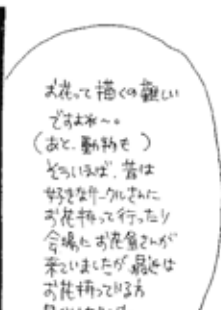 お花って描くの難しい
ですよね〜。
(あと、動物も)
そういえば、昔は
好きなサークルさんに
お花持って行ったり
会場にお花屋さんが
来ていましたが最近は
お花持っている方